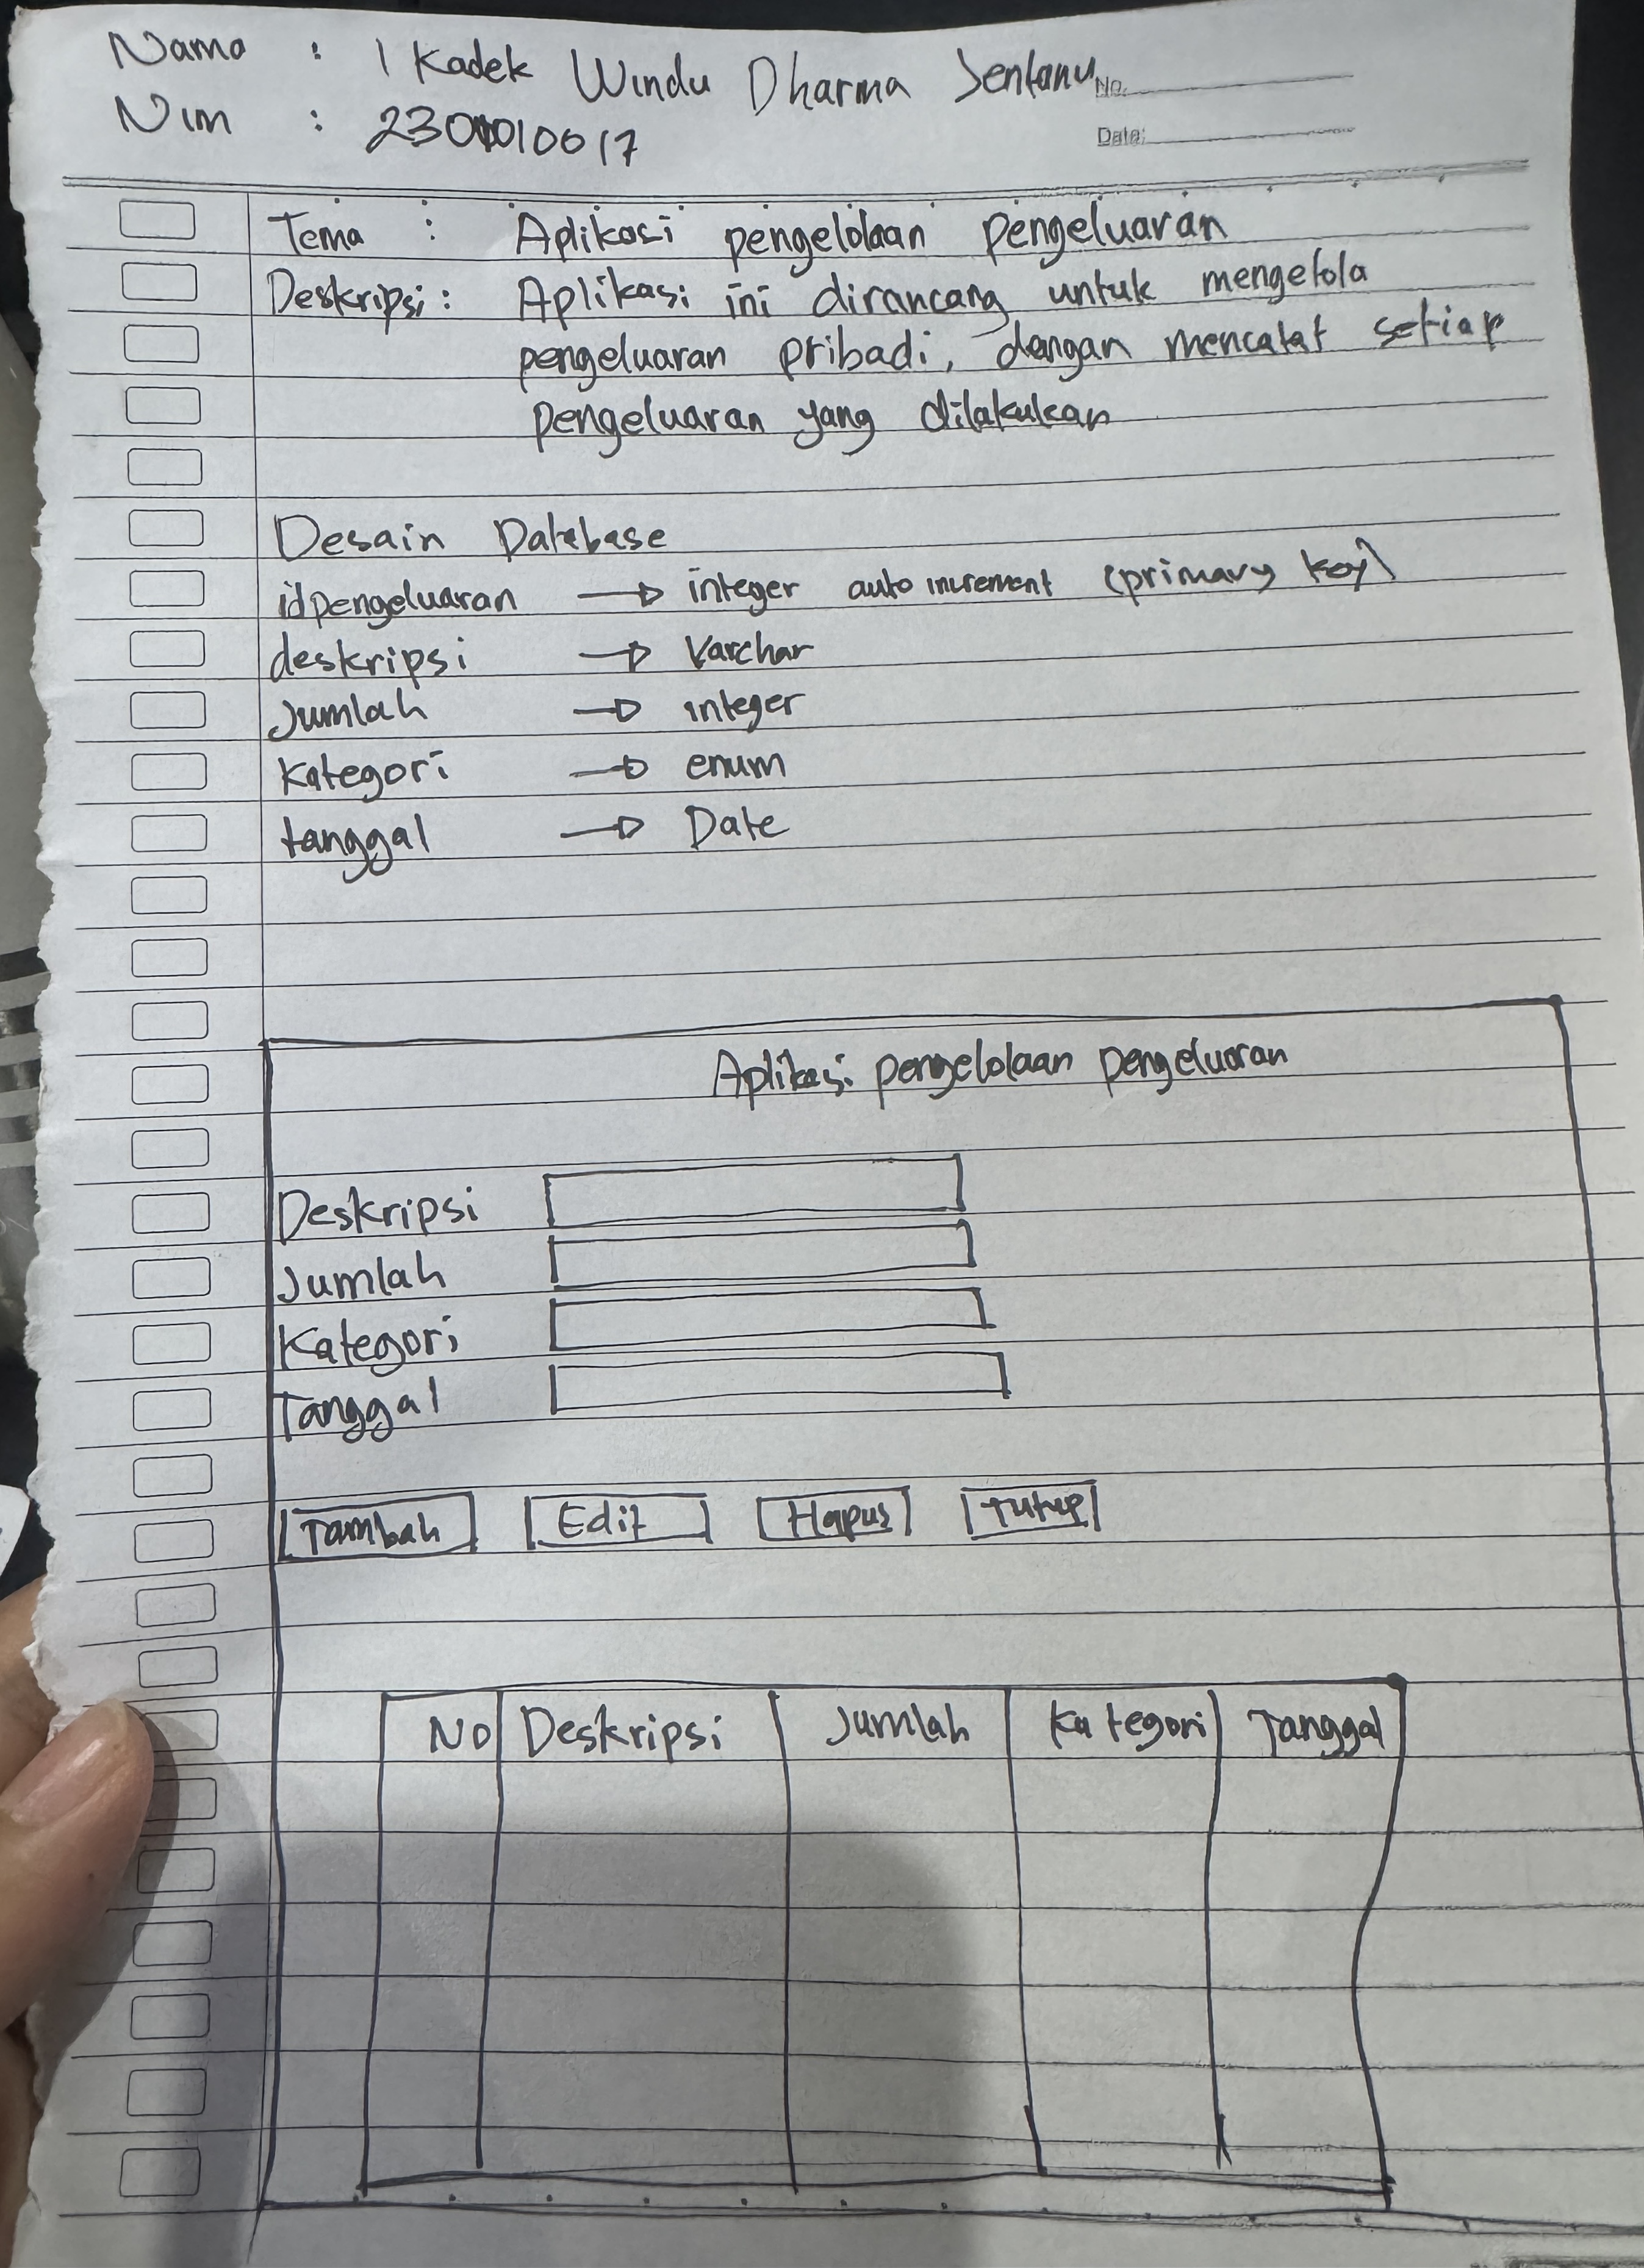 Nama : I Kadek Windu Dharma Sentanu
No.
Nim : 2301010017
Date:
Tema : Aplikasi pengelolaan pengeluaran
Deskripsi : Aplikasi ini dirancang untuk mengelola
pengeluaran pribadi, dengan mencatat setiap
pengeluaran yang dilakukan
Desain Database
idpengeluaran → integer auto increment (primary key)
deskripsi → Varchar
Jumlah → integer
Kategori → enum
tanggal → Date
Aplikasi pengelolaan pengeluaran
Deskripsi
Jumlah
Kategori
Tanggal
Tambah Edit Hapus Tutup
No Deskripsi Jumlah Kategori Tanggal